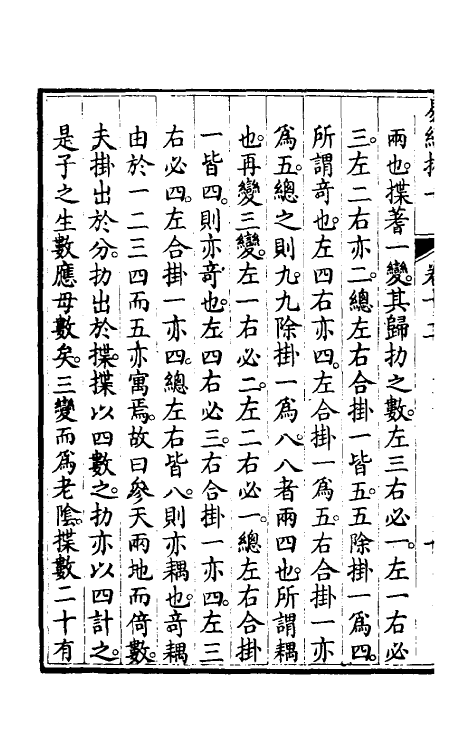 兩也。揲蓍一變。其歸扐之數。左三右必一。左一右必
三。左二右亦二。總左右合掛一皆五。五除掛一爲四。
所謂竒也。左四右亦四。左合掛一爲五。右合掛一亦
爲五。總之則九。九除掛一爲八。八者兩四也。所謂耦
也。再變三變。左一右必二。左二右必一。總左右合掛
一皆四。則亦竒也。左四右必三。右合掛一亦四。左三
右必四。左合掛一亦四。總左右皆八。則亦耦也。竒耦
由於一二三四而五亦寓焉。故曰參天兩地而倚數。
夫掛出於分。扐出於揲。揲以四數之。扐亦以四計之。
是子之生數應母數矣。三變而爲老陰。揲數二十有